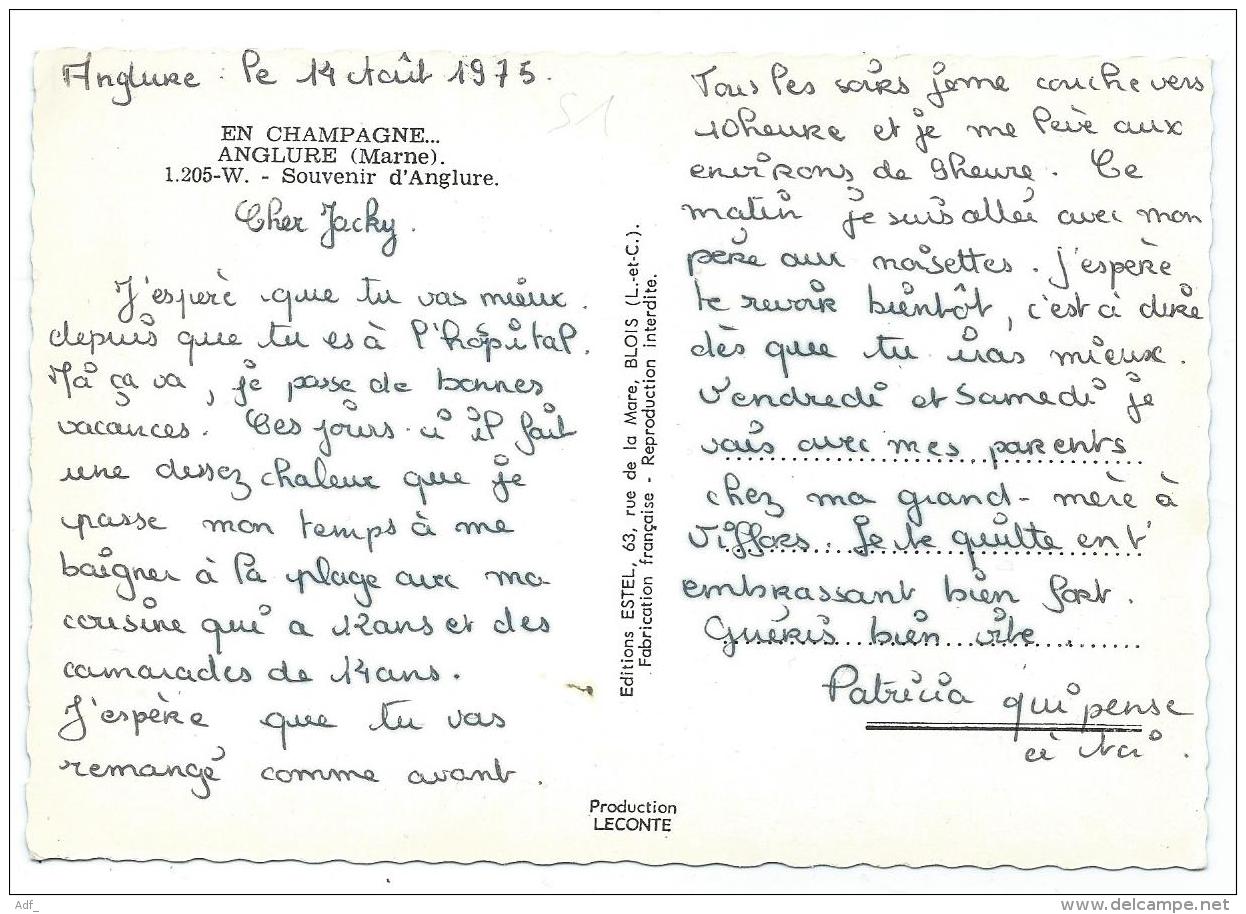 Anglure : le 14 Août 1975.
51
EN CHAMPAGNE...
ANGLURE (Marne).
1.205-W. - Souvenir d'Anglure.
Cher Jacky.
J'esperè que tu vas mieux.
depuis que tu es à l'hôpital.
Moi ça va, je passe de bonnes
vacances. Ces jours ci il fait
une chaleur que je
passe mon temps à me
baigner à la plage avec ma
cousine qui a 12 ans et des
camarades de 14 ans.
J'espère que tu vas
remangé comme avant.
Editions ESTEL, 63, rue de la Mare, BLOIS (L.-et-C.).
Fabrication française - Reproduction interdite.
Tous les soirs je me couche vers
10 heure et je me levè aux
environs de 9 heure. Ce
matin je suis allei avec mon
père aux noisettes. J'espère
te revoir bientôt, c'est à dire
dès que tu iras mieux.
Vendredi et Samedi je
vais avec mes parents
chez ma grand-merè à
Viffors. Je te quitte en t'
embrassant bien fort.
Guéris bien vite.
Patricia qui pense
à toi.
Production
LECONTE
Adf_
delcampe.net